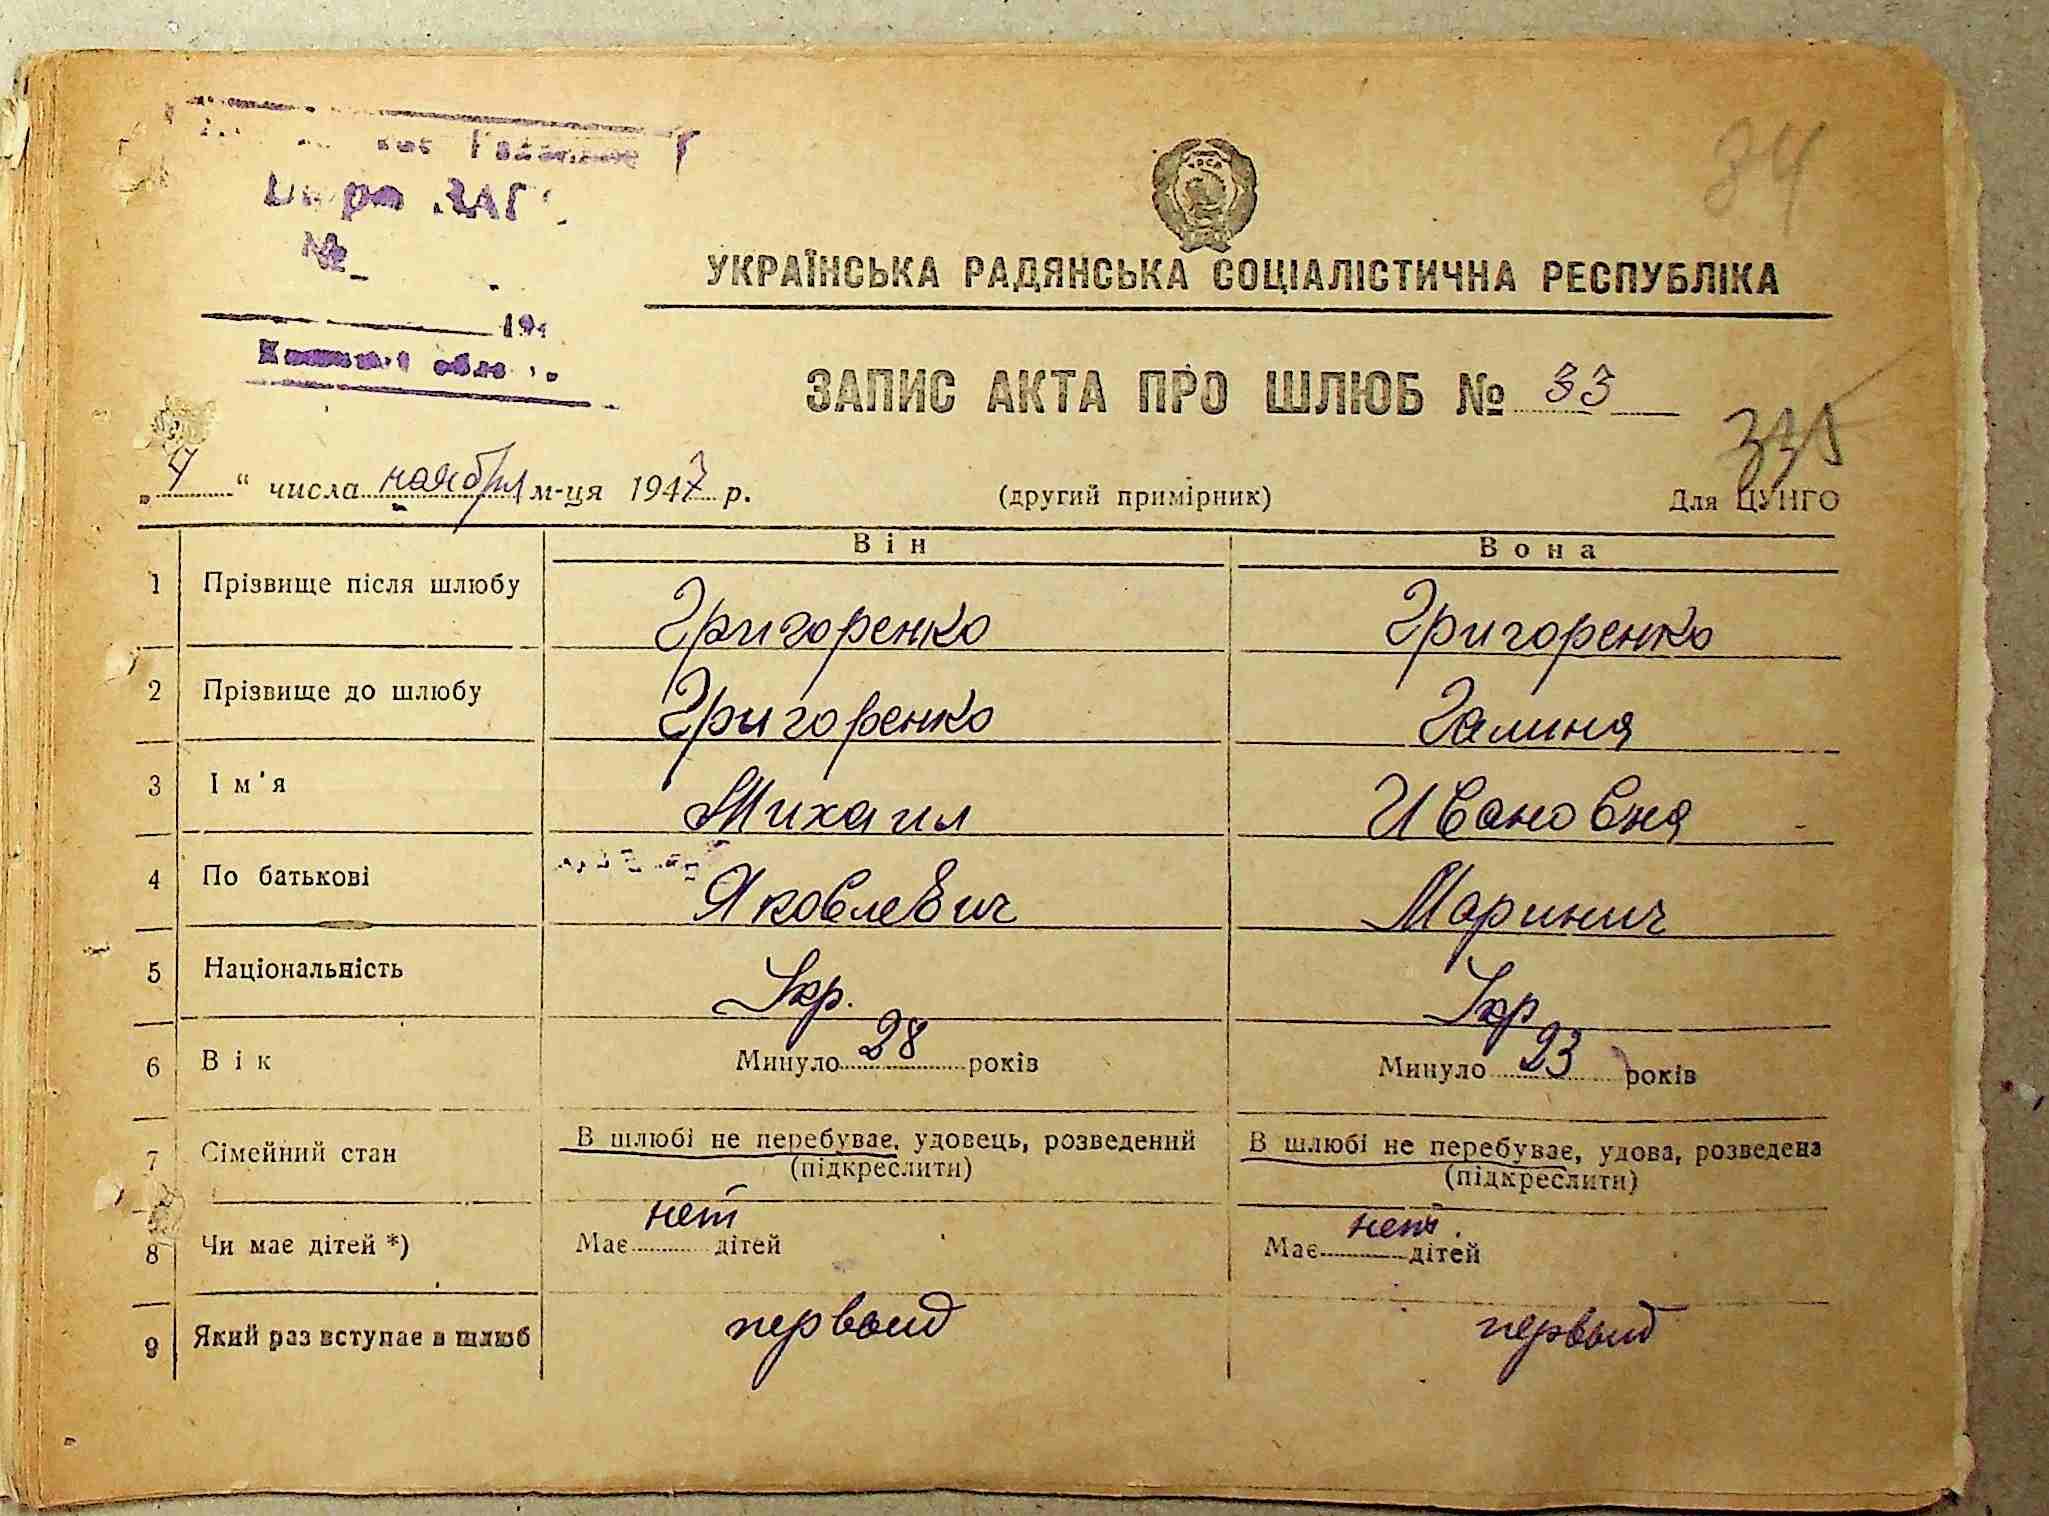 бюро ЗАГС
№
194
обла
34
УКРАЇНСЬКА РАДЯНСЬКА СОЦІАЛІСТИЧНА РЕСПУБЛІКА
ЗАПИС АКТА ПРО ШЛЮБ № 33
335
„4“ числа ноября м-ця 1947 р. (другий примірник) Для ЦУНГО
Він Вона
1 Прізвище після шлюбу Григоренко Григоренко
2 Прізвище до шлюбу Григоренко Галиня
3 Ім'я Михаил Ивановня
4 По батькові Яковлевич Маринич
5 Національність Укр. Укр
6 Вік Минуло 28 років Минуло 23 років
7 Сімейний стан В шлюбі не перебуває, удовець, розведений В шлюбі не перебуває, удова, розведена
(підкреслити) (підкреслити)
8 Чи має дітей *) Має нет дітей Має нет. дітей
9 Який раз вступає в шлюб первый первый